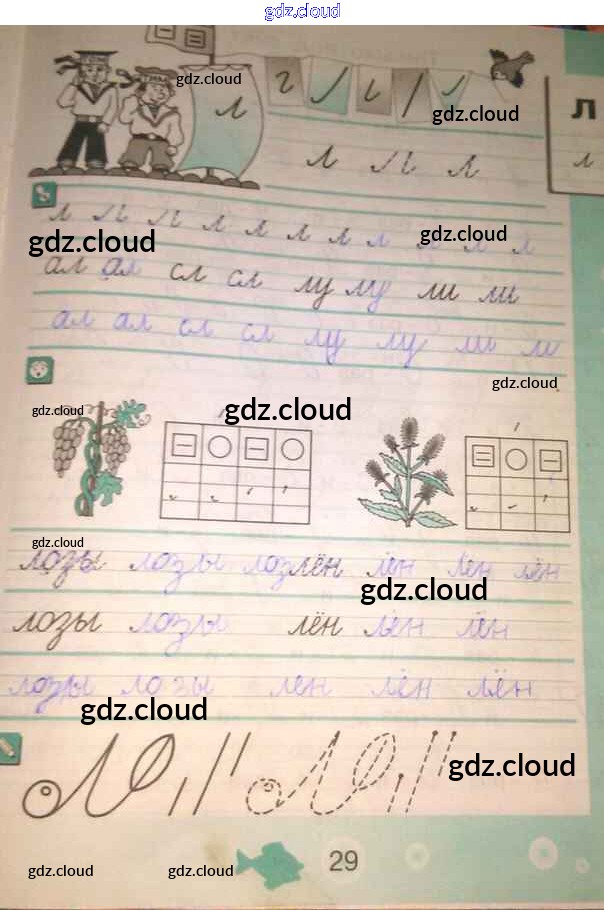 gdz.cloud
gdz.cloud
gdz.cloud
л
Л
л
л л л
л л л л л л л л л л л
gdz.cloud
gdz.cloud
ал ал сл сл лу лу ли ли
ал ал сл сл лу лу ли ли
gdz.cloud
gdz.cloud
gdz.cloud
gdz.cloud
лозы лозы лоз лён лён лён лён
gdz.cloud
лозы лозы лён лён лён
лозы лозы лен лён лён
gdz.cloud
gdz.cloud
29
gdz.cloud
gdz.cloud